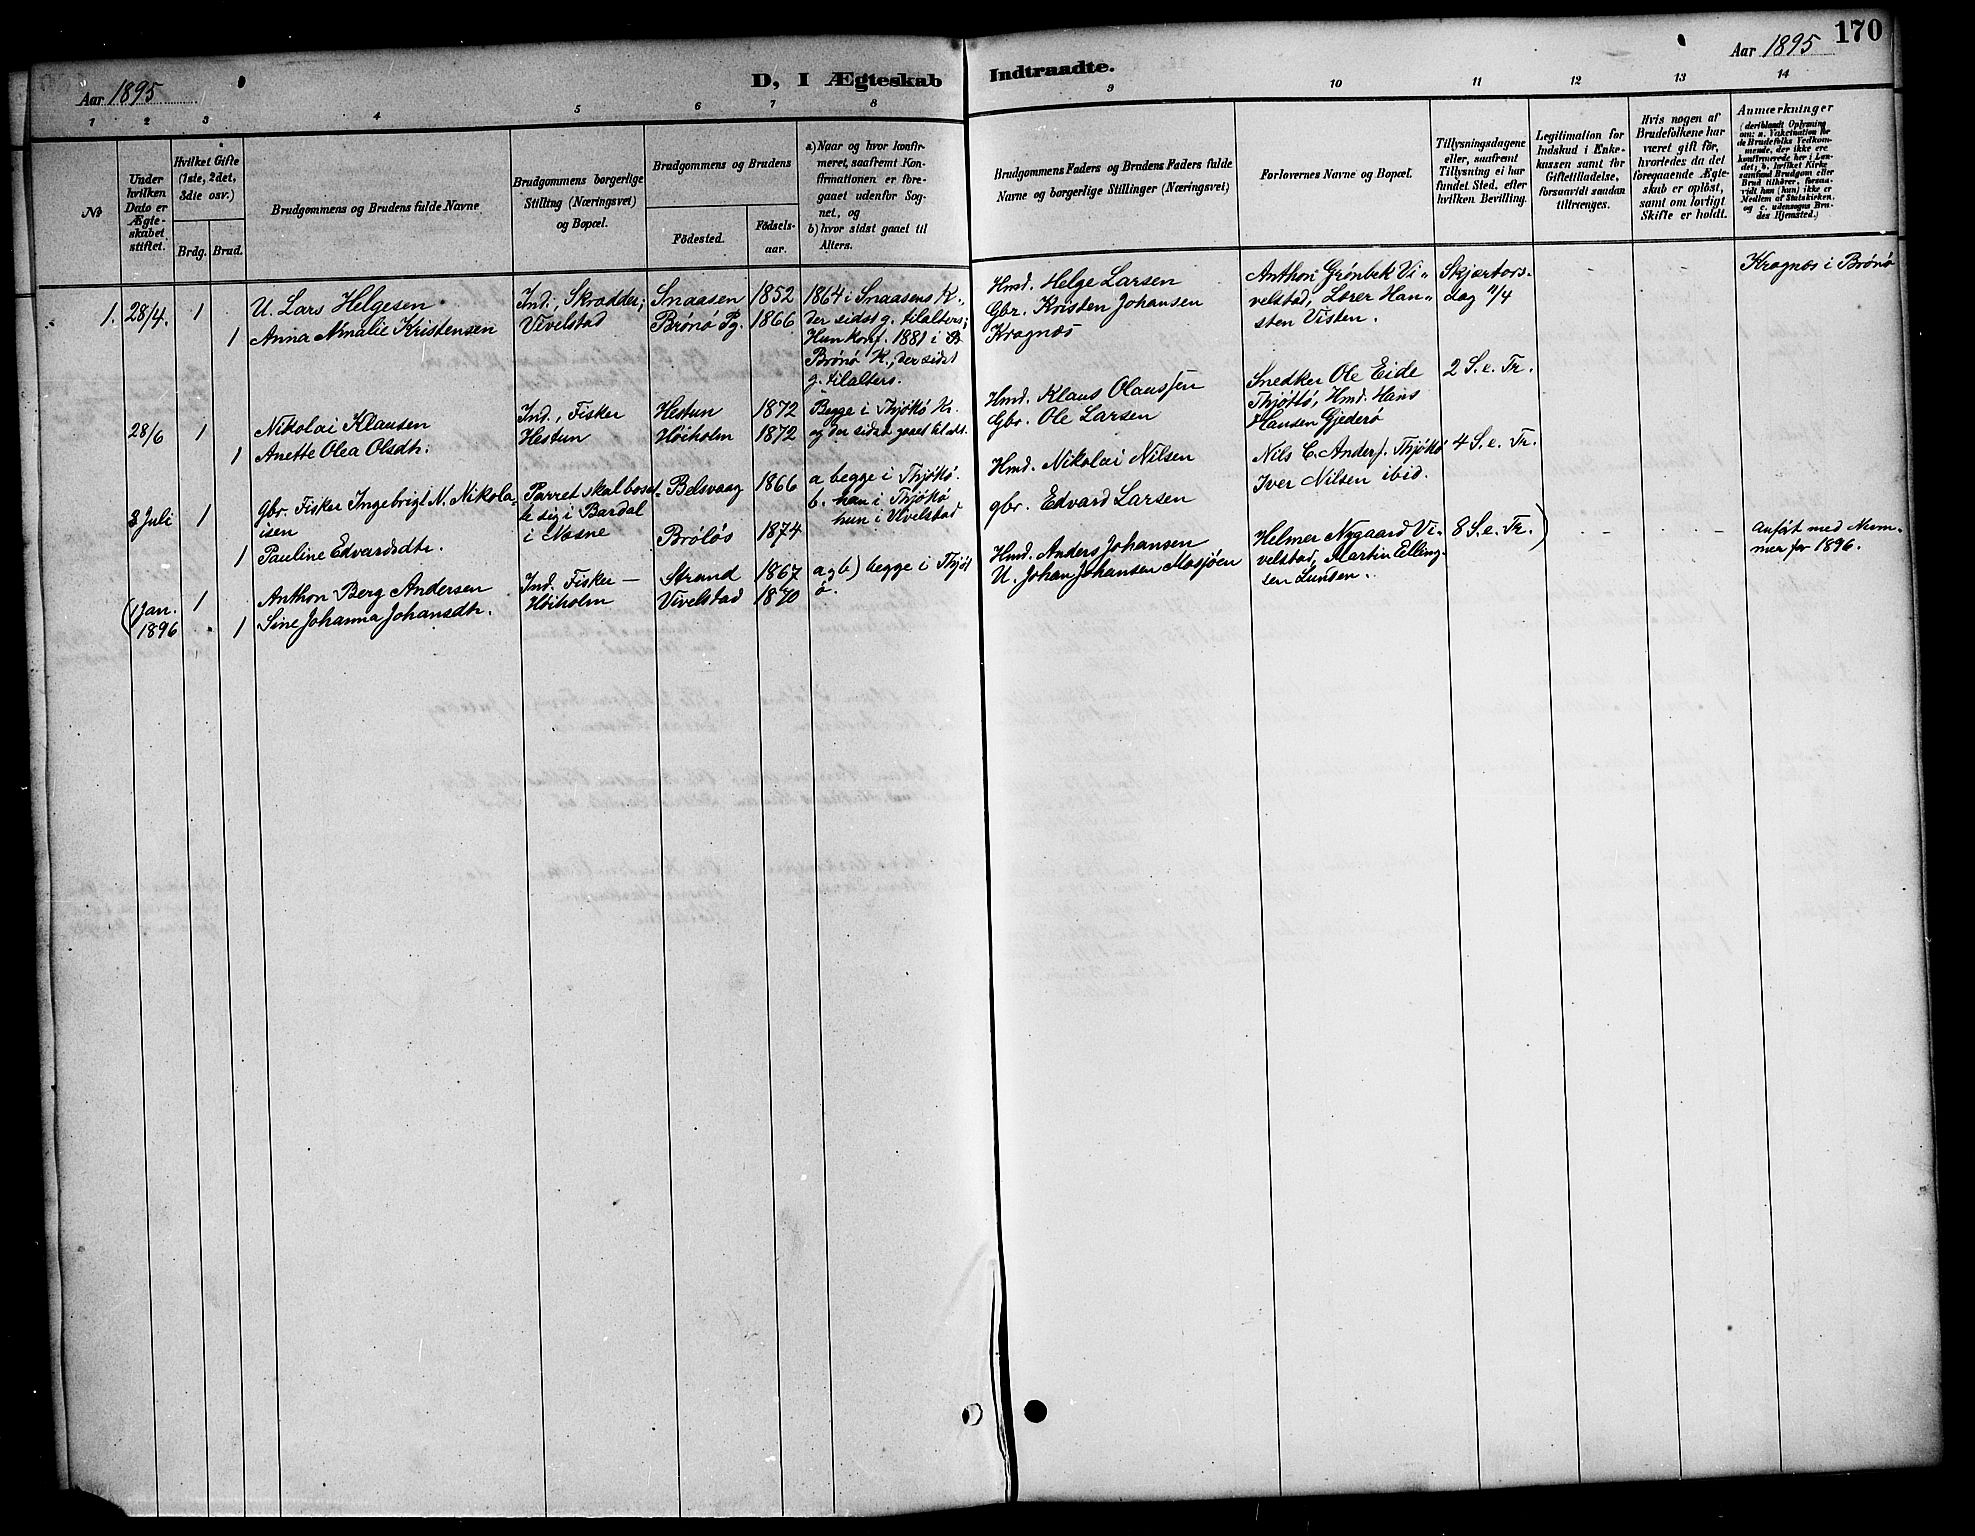 170
Aar 1895
D, I Ægteskab
Indtraadte.
Aar 1895
1 2 3 4 5 6 7 8 9 10 11 12 13 14
No
Under
hvilken
Dato er
Ægte-
skabet
stiftet.
Hvilket Gifte
(1ste, 2det,
3die osv.)
Brdg. Brud.
Brudgommens og Brudens fulde Navne
Brudgommens borgerlige
Stilling (Næringsvei)
og Bopæl.
Brudgommens og Brudens
Födested.
Födsels-
aar.
a) Naar og hvor konfir-
meret, saafremt Kon-
firmationen er fore-
gaaet udenfor Sog-
net, og
b) hvor sidst gaaet til
Alters.
Brudgommens Faders og Brudens Faders fulde
Navne og borgerlige Stillinger (Næringsvei)
Forlovernes Navne og Bopæl.
Tillysningsdagene
eller, saafremt
Tillysning ei har
fundet Sted, efter
hvilken Bevilling.
Legitimation for
Indskud i Enke-
kassen samt for
Giftetilladelse,
forsaavidt saadan
tiltrænges.
Hvis nogen af
Brudefolkene har
været gift før,
hvorledes da det
foregaaende Ægte-
skab er oplöst,
samt om lovligt
Skifte er holdt.
Anmærkninger
(deriblandt Oplysning
om: a. Vaksination for
de Brudefolks Vedkom-
mende, der ikke ere
konfirmerede her i Lan-
det, b. hvilket Kirke
samfund Brudgom eller
Brud tilhörer, forsaa-
vidt han (hun) ikke er
Medlem af Statskirken,
og c. udensogns Bru-
des Hjemsted.)
1. 28/4. 1 U. Lars Helgesen Ind., Skrædder; Snaasen 1852 1864 i Snaasens K.,
1 Anna Amalie Kristensen Vivelstad Brönö Pg. 1866 der sidst g. tilalters;
Hun konf. 1881 i
Brönö K., der sidst
g. tilalters.
Hmd. Helge Larsen
Gbr. Kristen Johansen
Kragnæs
Anthon Grönbek Vi-
velstad, Lærer Han-
sten Visten.
Skjærtors-
dag 11/4
- - Kragnæs i Brönö
28/6 1 Nikolai Klausen Ind., Fisker Hestun 1872 Begge i Thjöttö K.
1 Anette Olea Olsdtr. Hestun Höiholm 1872 og der sidst gaaet til alt.
Hmd. Klaus Olaussen
Gbr. Ole Larsen
Snedker Ole Eide
Thjöttö, Hmd. Hans
Hansen Gjederö
2 S. e. Tr.
3 Juli 1 Gbr. Fisker Ingebrigt N. Nikola-
isen
1 Pauline Edvardsdtr.
Parret skal bosæt-
te sig i Bardal
i Næsne
Belsvaag 1866
Brölös 1874
a begge i Thjöttö.
b. han i Thjöttö
hun i Vivelstad
Hmd. Nikolai Nilsen
gbr. Edvard Larsen
Nils C. Anders. Thjöttö
Iver Nilsen ibid.
4 S. e. Tr.
(1 Jan. 1 Anthon Berg Andersen Ind. Fisker — Strand 1867 a g b) begge i Thjöt
1896 1 Sine Johanna Johansdtr. Höiholm Vivelstad 1870 ö.
Hmd. Anders Johansen
U. Johan Johansen Mosjöen
Helmer Nygaard Vi-
velstad, Martin Elling-
sen Lunsen.
8 S. e. Tr.)
- - - anfört med Num-
mer for 1896.